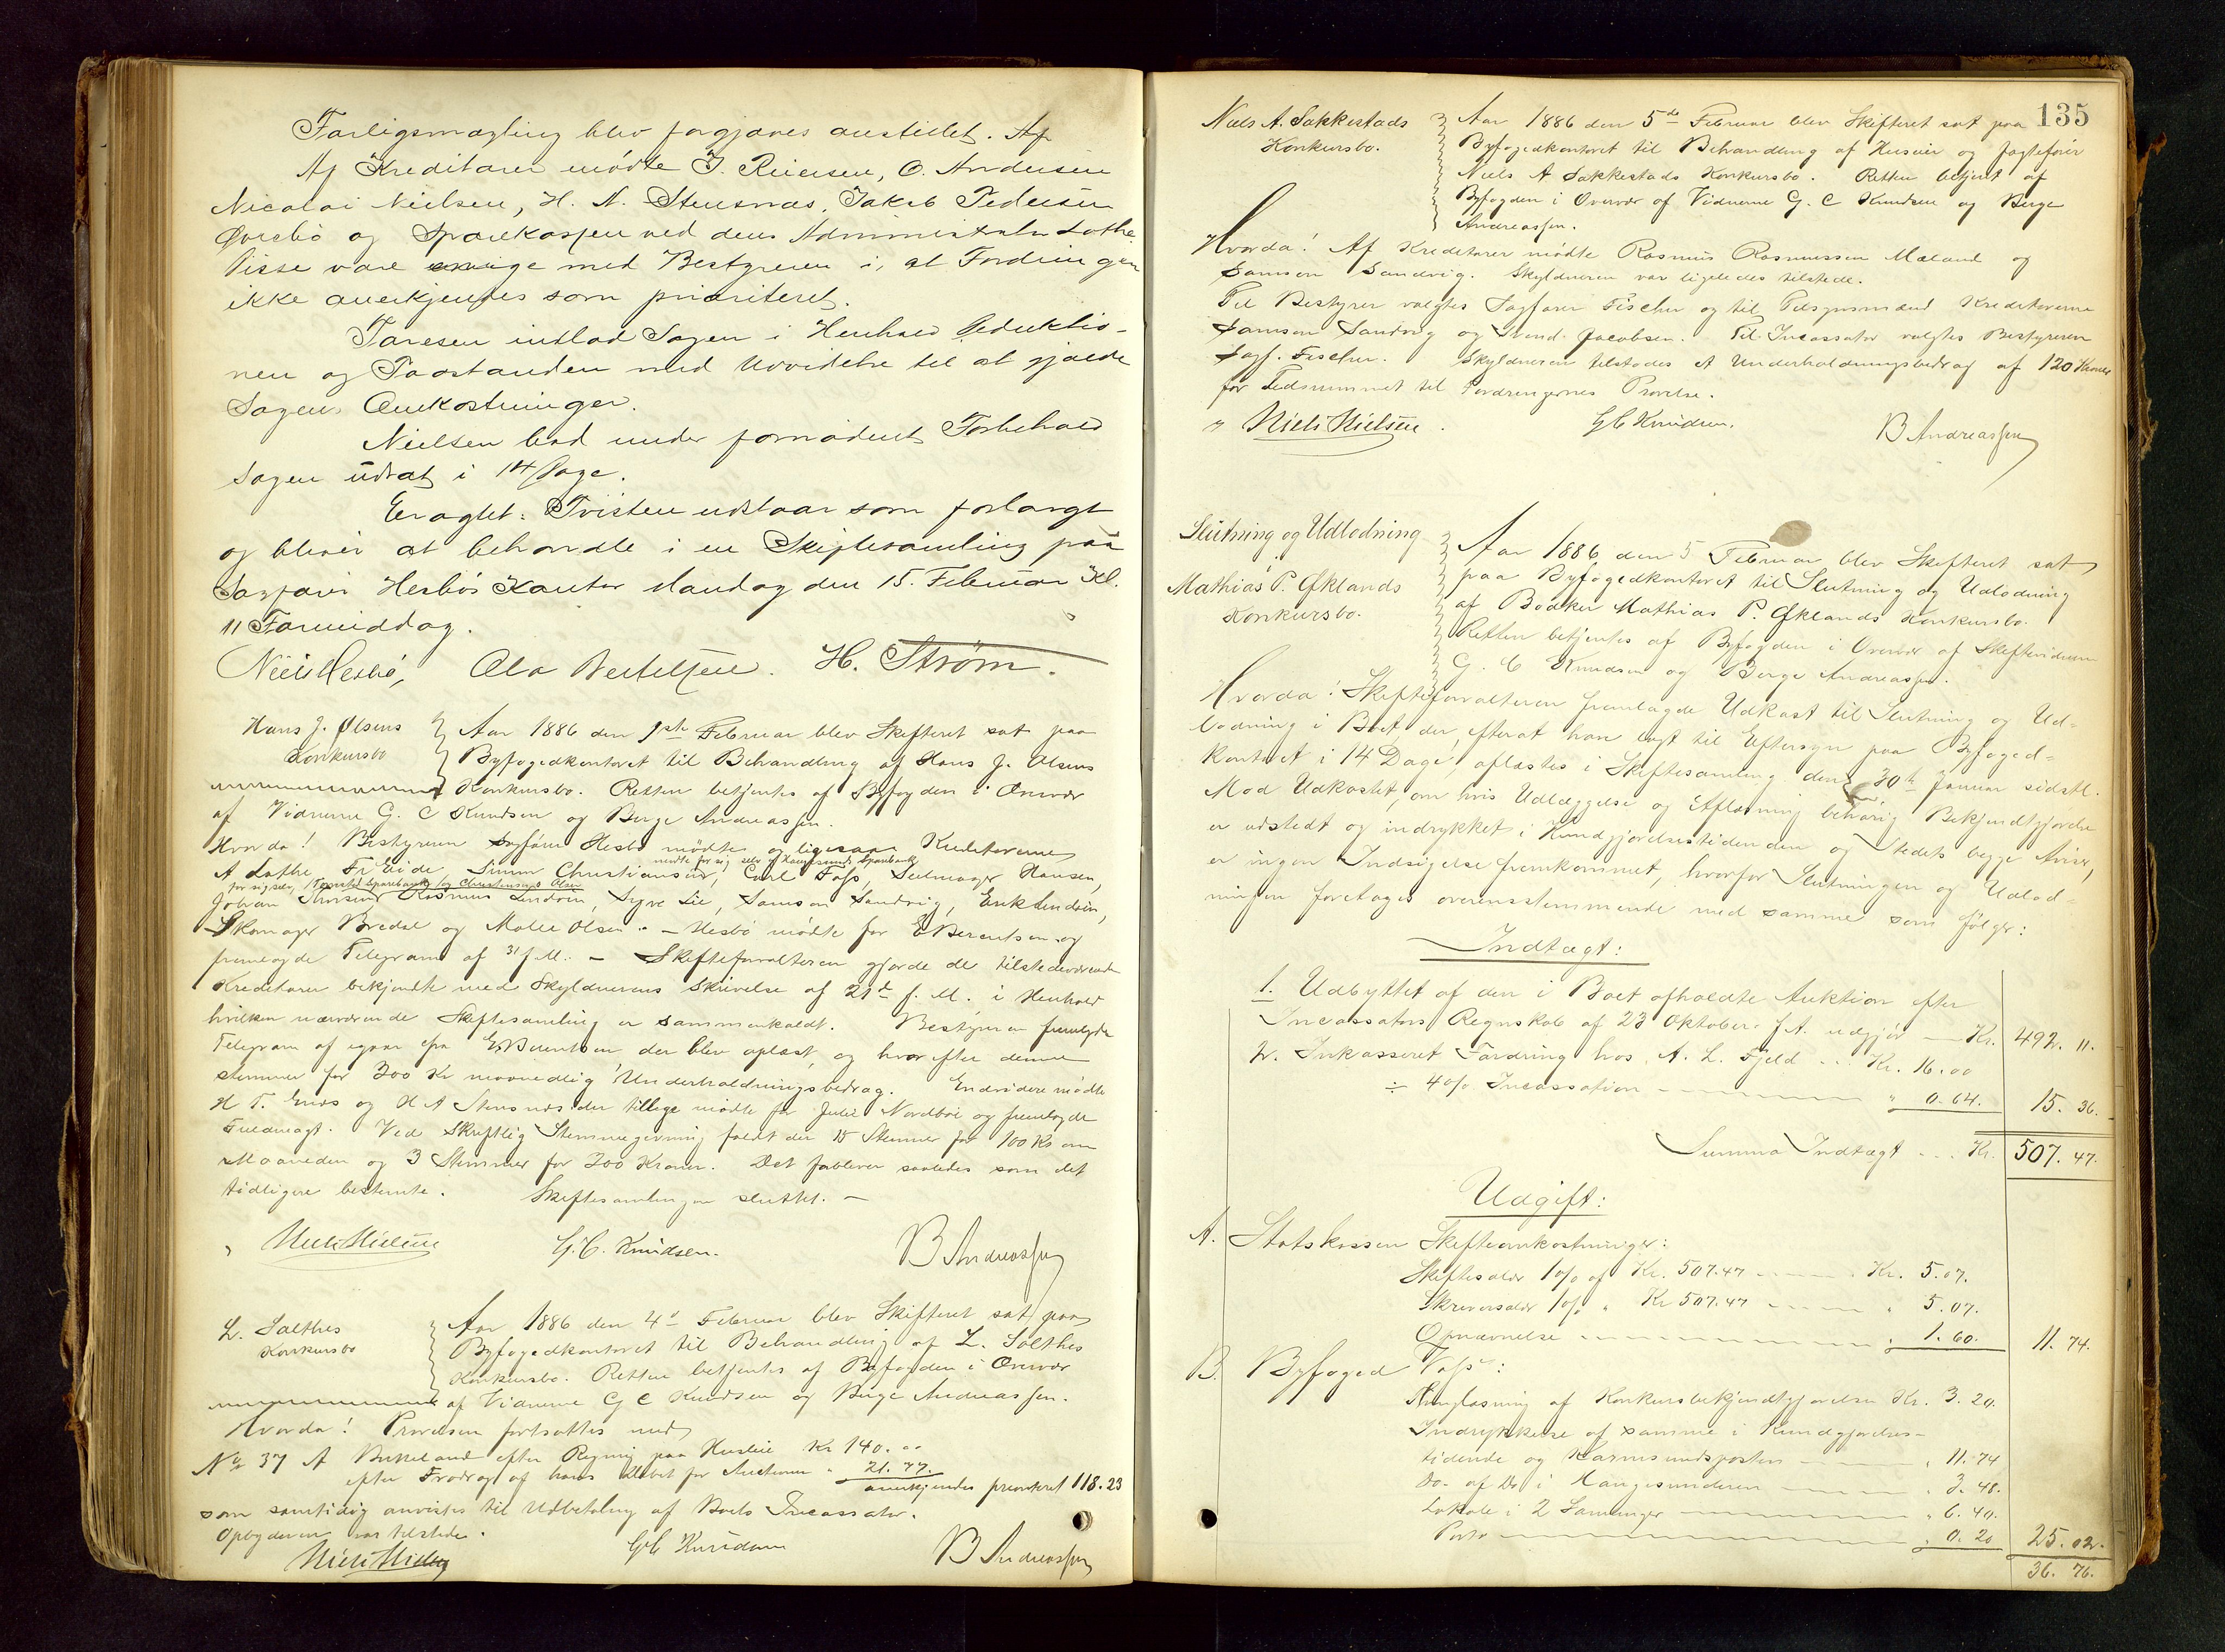 Forligsmægling blev forgjæves anstillet. Af
Af Kreditorer mødte J. Reiersen, O. Andersen
Nicolai Nielsen, H. A. Stensnæs, Jakob Pedersen
Øvrebø og Sparekassen ved dens Administrator Lothe.
Disse vare enige med Bestyreren i, at Fordringen
ikke anerkjendes som prioriteret.
Toresen indlod Sagen i Henhold Deduktio-
nen og Paastanden med Udvidelse til at gjælde
Sagens Omkostninger.
Nielsen bad under fornødent Forbehold
Sagen udsat i 14 Dage.
Eragtet: Tvisten udstaar som forlangt
og bliver at behandle i en Skiftesamling paa
Sagfører Hesbøs Kontor Mandag den 15. Februar Kl.
11 Formiddag.
Niels Hesbø, Ola Bertelsen. H. Strøm.
Hans J. Olsens
Konkursbo
Aar 1886 den 1ste Februar blev Skifteret sat paa
Byfogedkontoret til Behandling af Hans J. Olsens
Konkursbo. Retten betjentes af Byfogden i Overvær
af Vidnerne G. C Knudsen og Berge Andreassen.
Hvorda! Bestyreren Sagfører Hesbø mødte og ligesaa Kreditorerne
mødte for sig selv og Haugesunds Sparebank
A Lothe Fr Eide, Simon Christiansen, Carl Foss, Seilmager Hansen,
for sig selv, Sparebank og Christensens Olsen
Johan Thorsen, Rasmus Lindøen, Syre Lie, Samson Sandvig, Erik Lindøen,
Skomager Bredal og Malle Olsen. – Hesbø mødte for E Berentsen og
fremlagde Telegram af 31 f. M. – Skifteforvalteren gjorde de tilstedeværende
Kreditorer bekjendte med Skyldnerens Skrivelse af 21de f. M. i Henhold
hvilken nærværende Skiftesamling er sammenkaldt. Bestyreren fremlagde
Telegram af igaar fra E Berentsen der blev oplæst, og hvorefter denne
stemmer for 200 Kr maanedlig Underholdningsbidrag. Endvidere mødte
H T. Enæs og H A Stensnæs der tillige mødte for Julie Nordbøe og fremlagde
Fuldmagt. Ved Skriftlig Stemmegivning faldt der 15 Stemmer for 100 Kr om
Maaneden og 3 Stemmer for 200 Kroner. Det forbliver saaledes som det
tidligere bestemte. Skiftesamlingen sluttet. –
Niels Nielsen G. C. Knudsen. B Andreassen
L. Salthes
Konkursbo
Aar 1886 den 4de Februar blev Skifteret sat paa
Byfogedkontoret til Behandling af L. Salthes
Konkursbo. Retten betjentes af Byfogden i Overvær
af Vidnerne G C Knudsen og Berge Andreassen.
Hvorda! Prøvelsen fortsattes med
No 37 A Birkeland efter Regning paa Husleie Kr 140. 00
efter Fradrag af hans Kjøbet for Auktionen " 21. 77.
anerkjendes prioriteret 118.23
som samtidig anvistes til Udbetaling af Boets Incassator.
Opbyderen var tilstede.
Niels Nielsen G C Knudsen B Andreassen
135
Niels A. Sakkestads
Konkursbo.
Aar 1886 den 5te Februar blev Skifteret sat paa
Byfogedkontoret til Behandling af Huseier og Jagtefører
Niels A Sakkestads Konkursbo. Retten betjent af
Byfogden i Overvær af Vidnerne G. C Knudsen og Berge
Andreassen.
Hvorda! Af Kreditorer mødte Rasmus Rasmussen Mæland og
Samson Sandvig. Skyldneren var ligeledes tilstede.
Til Bestyrer valgtes Sagfører Fischer og til Tilsynsmænd Kreditorerne
Samson Sandvig og Svend Jacobsen. Til Incassator valgtes Bestyreren
Sagf. Fischer. Skyldneren tilstodes et Underholdningsbidrag af 120 Kroner
for Tidsrummet til Fordringernes Prøvelse.
Niels Nielsen. G C Knudsen. B Andreassen
Slutning og Udlodning
Mathias P. Øklands
Konkursbo.
Aar 1886 den 5 Februar blev Skifteret sat
paa Byfogedkontoret til Slutning og Udlodning
af Bødker Mathias P. Øklands Konkursbo.
Retten betjentes af Byfogden i Overvær af Skiftevidnerne
G. C Knudsen og Berge Andreassen.
Hvorda! Skifteforvalteren fremlagde Udkast til Slutning og Ud-
lodning i Boet der, efterat have lagt til Eftersyn paa Byfoged-
kontoret i 14 Dage, oplæstes i Skiftesamling den 30te Januar sidstl.
Mod Udkastet, om hvis Udlæggelse og Oplæsning behørig Bekjendtgjørelse
er udstedt og indrykket i Kundgjørelsestidenden og Stedets begge Aviser,
er ingen Indsigelse fremkommet, hvorfor Slutningen og Udlod-
ningen foretages overensstemmende med samme som følger:
Indtægt:
1. Udbyttet af den i Boet afholdte Auktion efter
Incassators Regnskab af 23 Oktober f. A. udgjør — Kr. 492. 11.
2. Inkasseret Fordring hos A. L. Fjeld ... Kr. 16.00
÷ 4 o/o Incassation " 0.64. 15. 36.
Summa Indtægt ... Kr. 507. 47.
Udgift:
A. Statskassen Skifteomkostninger:
Skiftesalær 1 o/o af Kr. 507.47 Kr. 5.07.
Skriversalær 1 o/o " Kr 507.47 " 5.07.
Opnævnelse " 1.60. 11. 74.
B. Byfoged Voss:
Thinglæsning af Konkursbekjendtgjørelsen Kr. 3. 20.
Indrykkelse af samme i Kundgjørelses-
tidende og Karmsundsposten " 11.74
Do. af Do i Haugesunderen " 3. 48.
Lokale i 2 Samlinger " 6. 40.
Porto " 0. 20 25. 02.
36. 76.